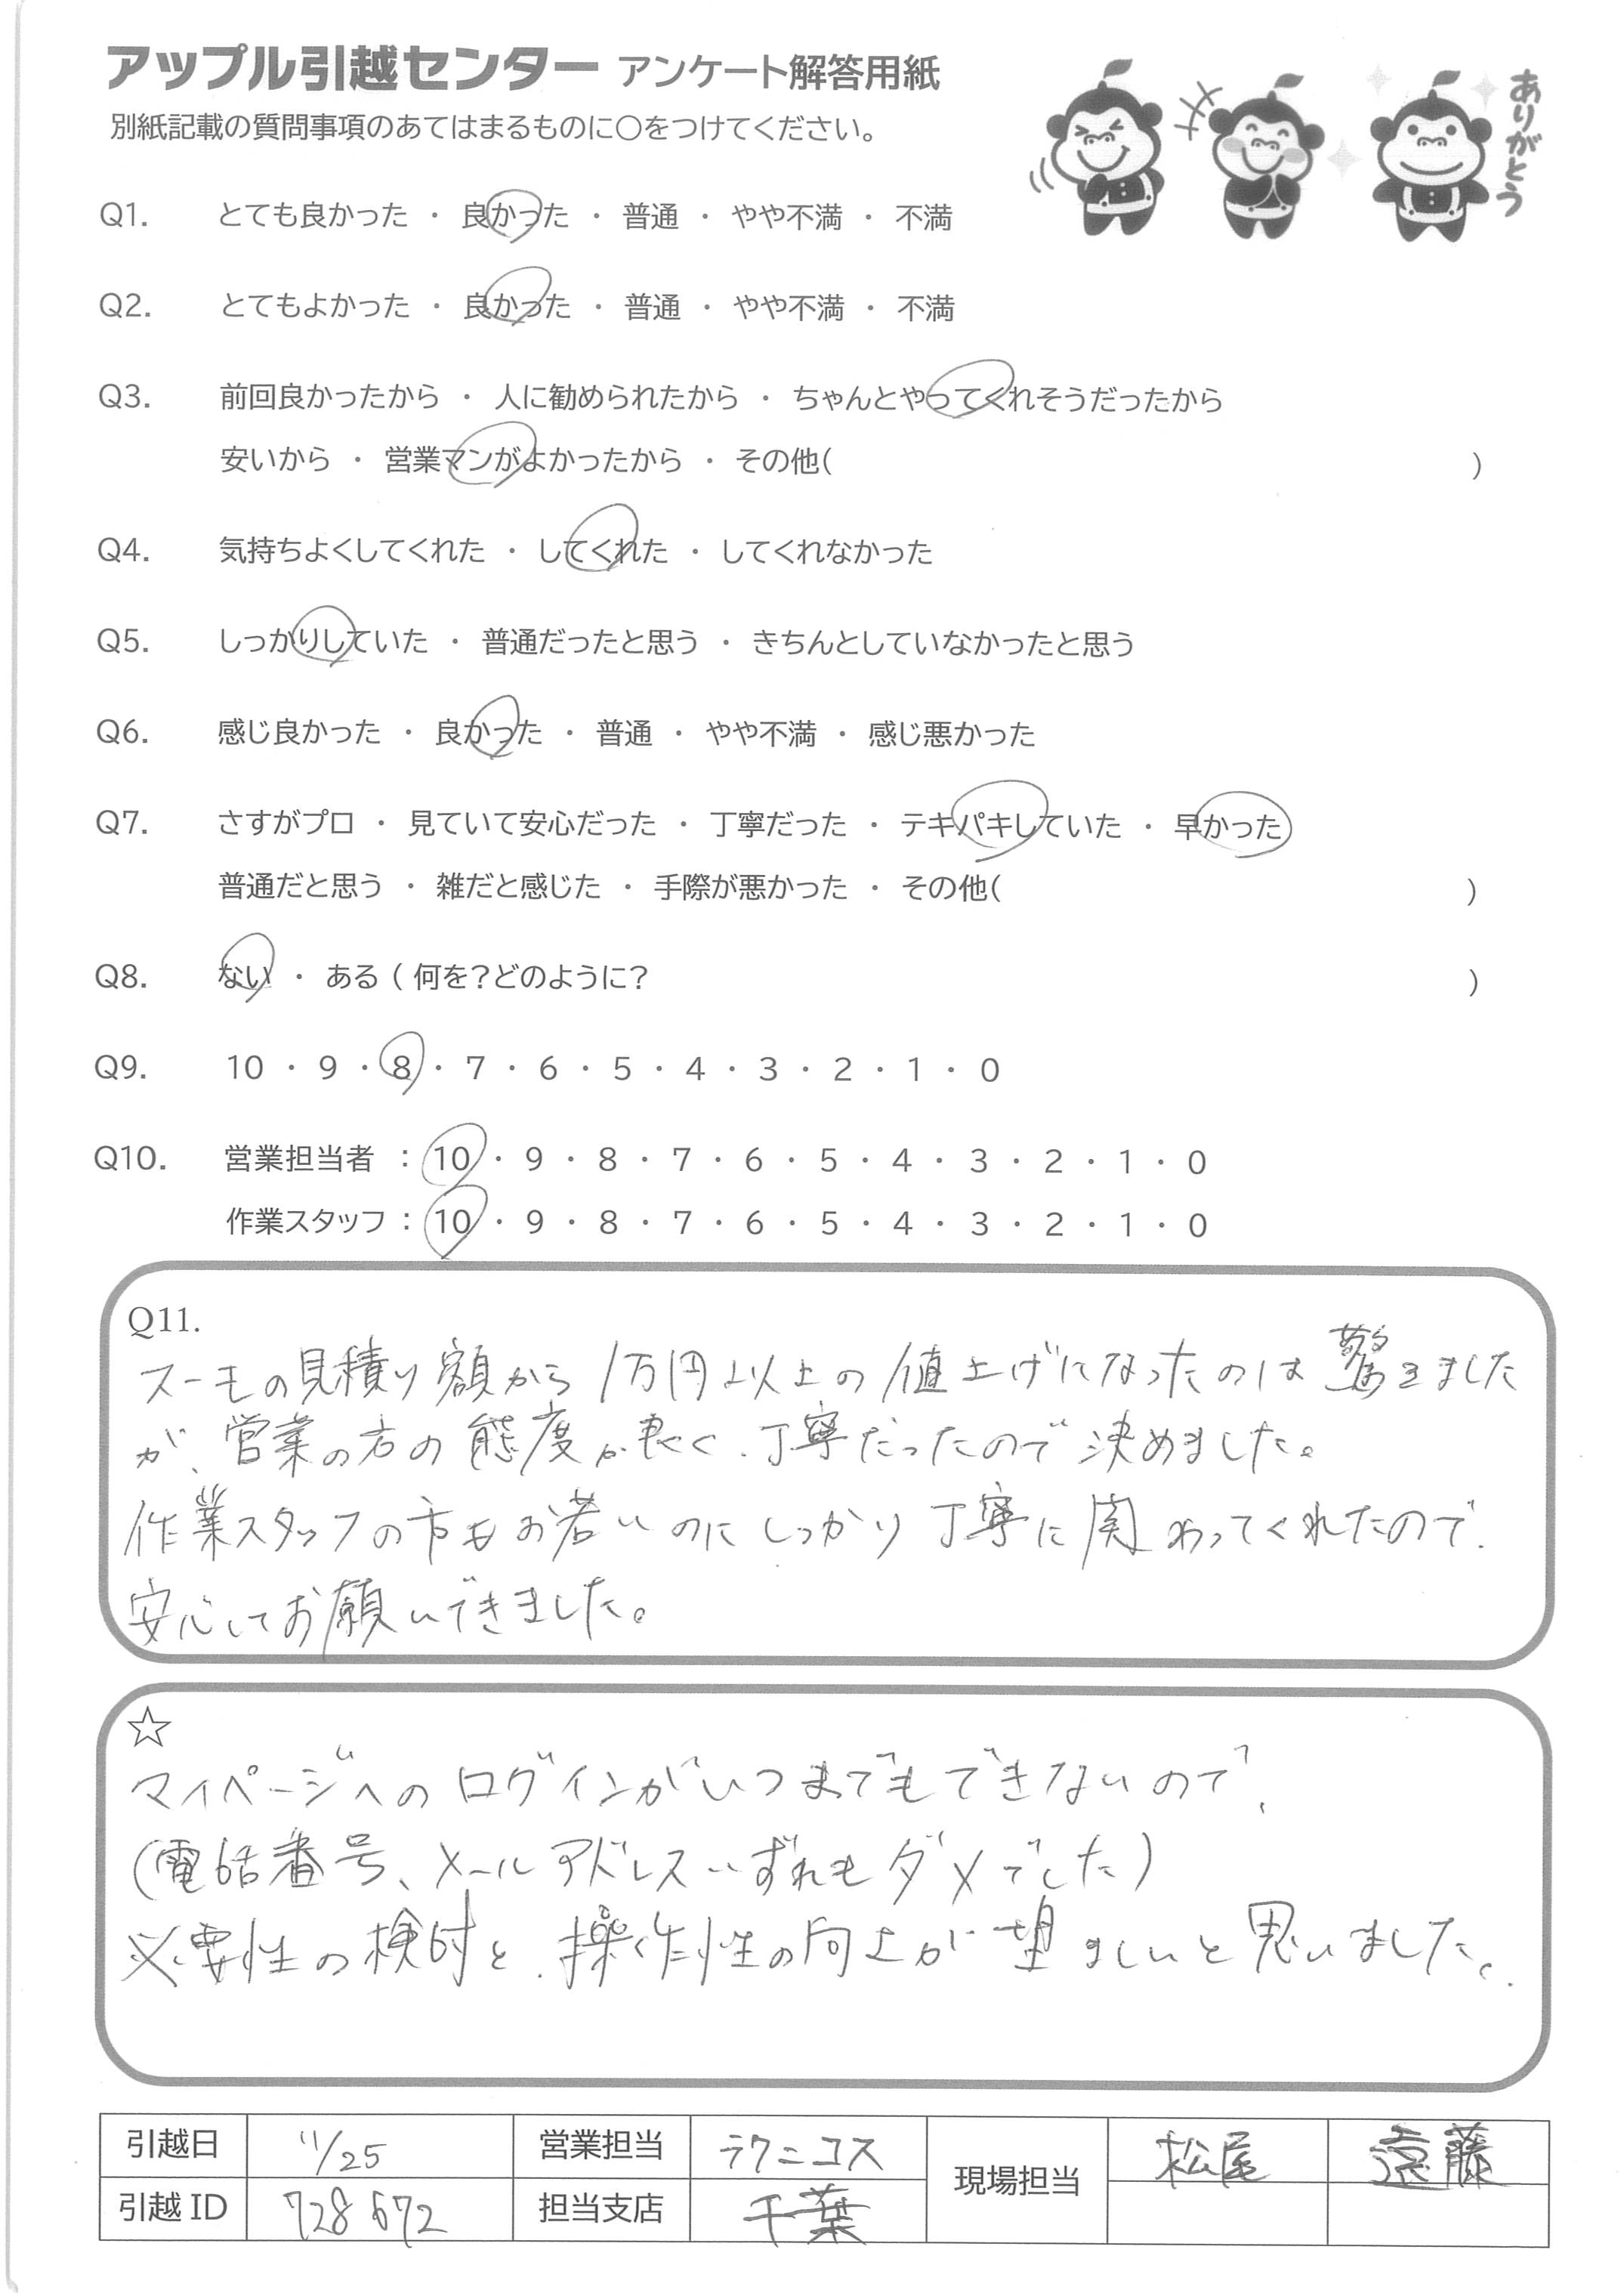 アップル引越センター アンケート解答用紙
別紙記載の質問事項のあてはまるものに〇をつけてください。
ありがとう
Q1. とても良かった ・ 良かった ・ 普通 ・ やや不満 ・ 不満
Q2. とてもよかった ・ 良かった ・ 普通 ・ やや不満 ・ 不満
Q3. 前回良かったから ・ 人に勧められたから ・ ちゃんとやってくれそうだったから
安いから ・ 営業マンがよかったから ・ その他( )
Q4. 気持ちよくしてくれた ・ してくれた ・ してくれなかった
Q5. しっかりしていた ・ 普通だったと思う ・ きちんとしていなかったと思う
Q6. 感じ良かった ・ 良かった ・ 普通 ・ やや不満 ・ 感じ悪かった
Q7. さすがプロ ・ 見ていて安心だった ・ 丁寧だった ・ テキパキしていた ・ 早かった
普通だと思う ・ 雑だと感じた ・ 手際が悪かった ・ その他( )
Q8. ない ・ ある ( 何を?どのように? )
Q9. 10 ・ 9 ・ 8 ・ 7 ・ 6 ・ 5 ・ 4 ・ 3 ・ 2 ・ 1 ・ 0
Q10. 営業担当者 : 10 ・ 9 ・ 8 ・ 7 ・ 6 ・ 5 ・ 4 ・ 3 ・ 2 ・ 1 ・ 0
作業スタッフ : 10 ・ 9 ・ 8 ・ 7 ・ 6 ・ 5 ・ 4 ・ 3 ・ 2 ・ 1 ・ 0
Q11.
スーモの見積り額から1万円以上の値上げになったのは驚きました
が、営業の方の態度が良く、丁寧だったので決めました。
作業スタッフの方もお若いのにしっかり丁寧に関わってくれたので、
安心してお願いできました。
☆
マイページへのログインがいつまでもできないので、
(電話番号、メールアドレスいずれもダメでした)
必要性の検討と、操作性の向上が望ましいと思いました。
引越日 11/25 営業担当 ラクニコス 現場担当 松尾 遠藤
引越ID 728672 担当支店 千葉